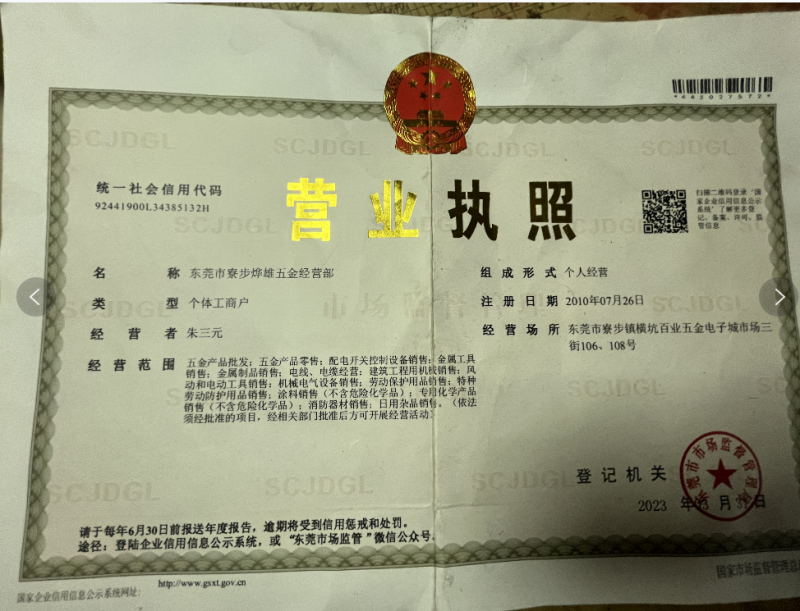 *443027572*
统一社会信用代码
92441900L34385132H
营业执照
扫描二维码登录“国
家企业信用信息公示
系统”了解更多登
记、备案、许可、监
管信息
名 称 东莞市寮步烨雄五金经营部
组成形式 个人经营
类 型 个体工商户
注册日期 2010年07月26日
经营者 朱三元
经营场所 东莞市寮步镇横坑百业五金电子城市场三
街106、108号
经营范围 五金产品批发；五金产品零售；配电开关控制设备销售；金属工具
销售；金属制品销售；电线、电缆经营；建筑工程用机械销售；风
动和电动工具销售；机械电气设备销售；劳动保护用品销售；特种
劳动防护用品销售；涂料销售（不含危险化学品）；专用化学产品
销售（不含危险化学品）；消防器材销售；日用杂品销售。（依法
须经批准的项目，经相关部门批准后方可开展经营活动）
登记机关
东莞市市场监督管理局
2023 年 03 月 31 日
请于每年6月30日前报送年度报告，逾期将受到信用惩戒和处罚。
途径：登陆企业信用信息公示系统，或“东莞市场监管”微信公众号。
国家企业信用信息公示系统网址：
http://www.gsxt.gov.cn
国家市场监督管理总